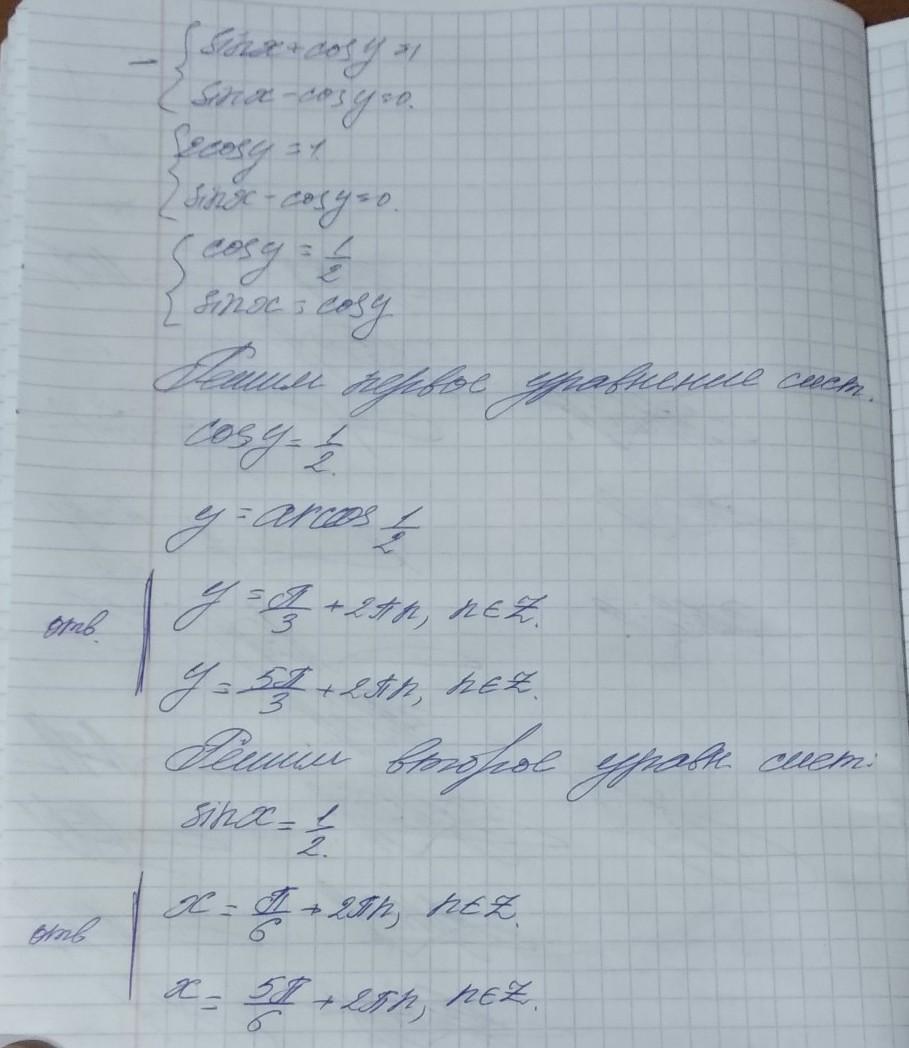 - { sinx + cosy = 1
sinx - cosy = 0.
{ 2cosy = 1
sinx - cosy = 0.
{ cosy = 1/2
sinx = cosy
Решим первое уравнение сист.
cosy = 1/2.
y = arccos 1/2
y = π/3 + 2πn, n∈Z.
отв.
y = 5π/3 + 2πn, n∈Z.
Решим второе уравн сист:
sinx = 1/2.
x = π/6 + 2πn, n∈Z.
отв
x = 5π/6 + 2πn, n∈Z.